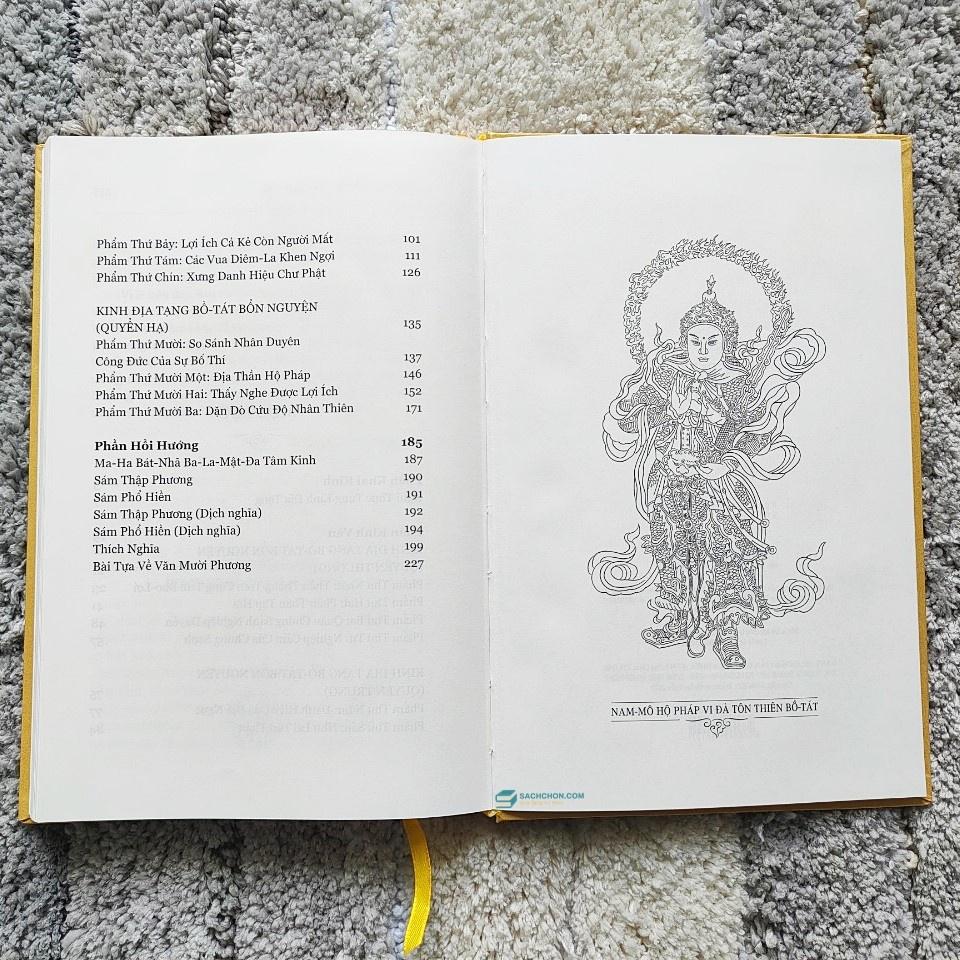 Phẩm Thứ Bảy: Lợi Ích Cả Kẻ Còn Người Mất 101
Phẩm Thứ Tám: Các Vua Diêm-La Khen Ngợi 111
Phẩm Thứ Chín: Xưng Danh Hiệu Chư Phật 126
KINH ĐỊA TẠNG BỒ-TÁT BỔN NGUYỆN
(QUYỂN HẠ) 135
Phẩm Thứ Mười: So Sánh Nhân Duyên
Công Đức Của Sự Bố Thí 137
Phẩm Thứ Mười Một: Địa Thần Hộ Pháp 146
Phẩm Thứ Mười Hai: Thấy Nghe Được Lợi Ích 152
Phẩm Thứ Mười Ba: Dặn Dò Cứu Độ Nhân Thiên 171
Phần Hồi Hướng 185
Ma-Ha Bát-Nhã Ba-La-Mật-Đa Tâm Kinh 187
Sám Thập Phương 190
Sám Phổ Hiền 191
Sám Thập Phương (Dịch nghĩa) 192
Sám Phổ Hiền (Dịch nghĩa) 194
Thích Nghĩa 199
Bài Tựa Về Văn Mười Phương 227
NAM-MÔ HỘ PHÁP VI ĐÀ TÔN THIÊN BỒ-TÁT
SACHCHON.COM